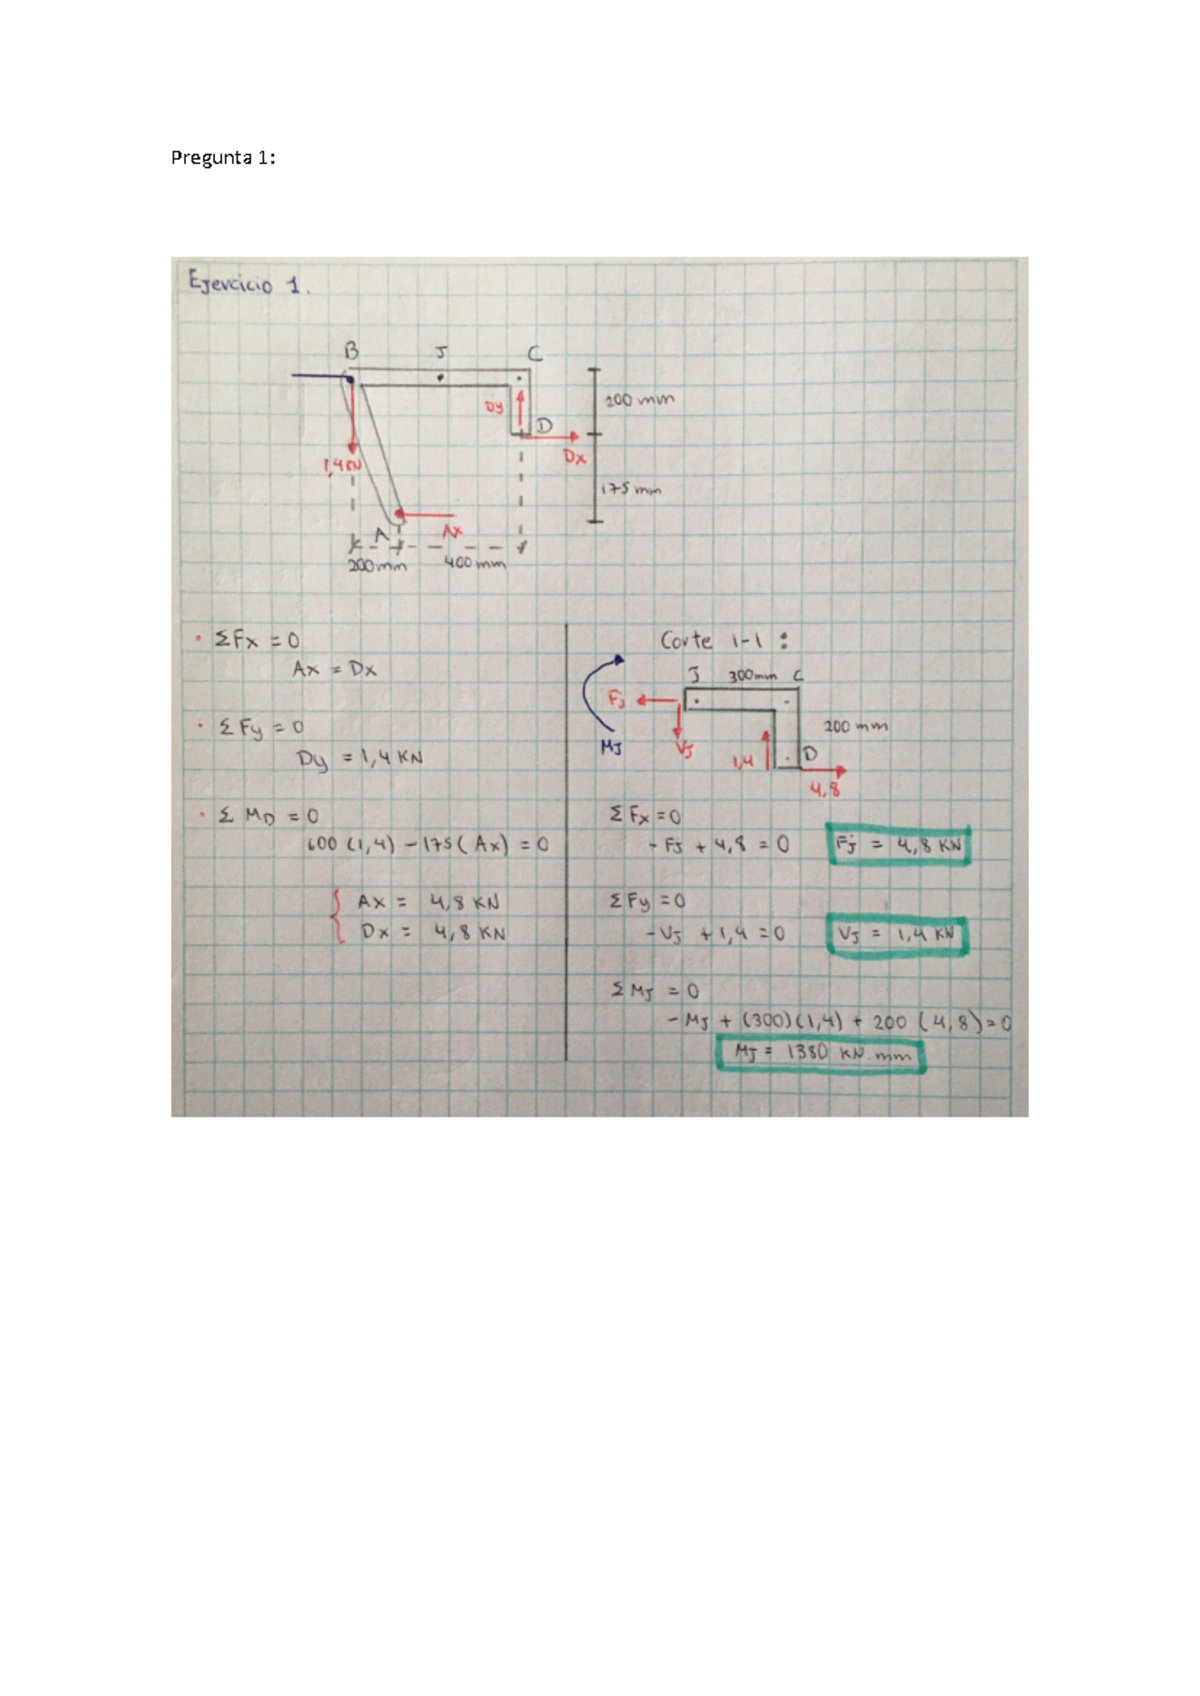 Pregunta 1:
Ejercicio 1.
B J C
200 mm
Dy
D
Dx
1,4 KN
175 mm
A
Ax
200mm 400 mm
• ΣFx = 0
Ax = Dx
• ΣFy = 0
Dy = 1,4 KN
• Σ MD = 0
600 (1,4) - 175 (Ax) = 0
{ Ax = 4,8 KN
Dx = 4,8 KN
Corte 1-1 :
J 300mm C
Fj
200 mm
MJ VJ 1,4 D
4,8
ΣFx = 0
- FJ + 4,8 = 0 FJ = 4,8 KN
ΣFy = 0
- VJ + 1,4 = 0 VJ = 1,4 KN
Σ MJ = 0
- MJ + (300)(1,4) + 200 (4,8) = 0
MJ = 1380 KN.mm